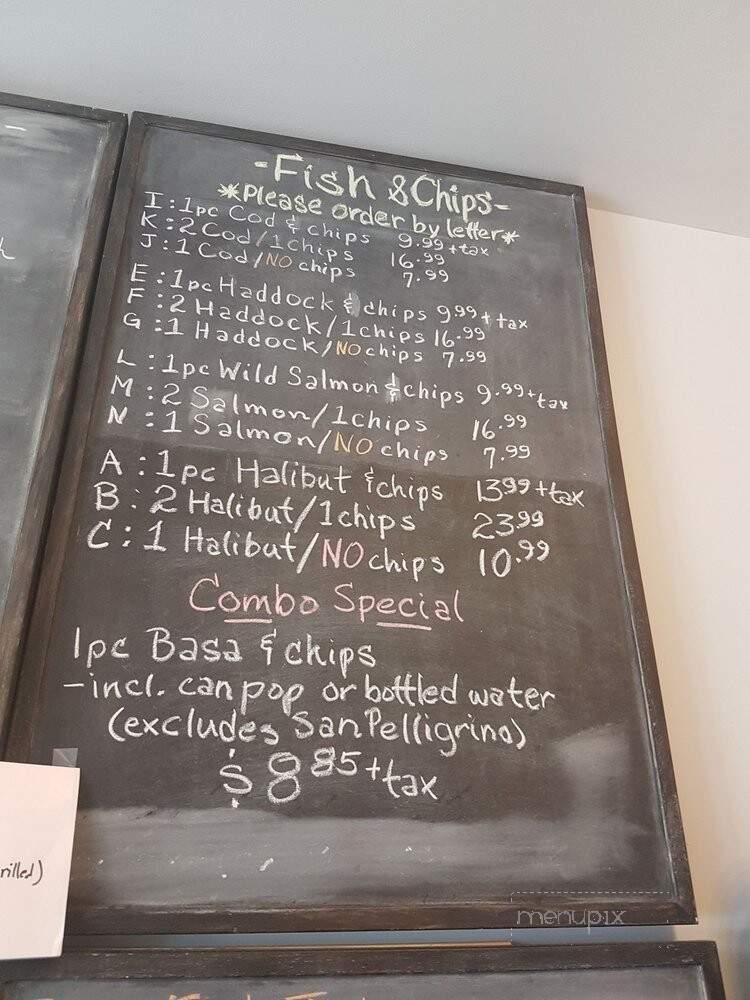 -Fish & Chips-
*Please order by letter*
I:1pc Cod & chips 9.99+tax
K:2 Cod/1chips 16.99
J:1 Cod/NO chips 7.99
E:1pc Haddock & chips 9.99+tax
F:2 Haddock/1chips 16.99
G:1 Haddock/NO chips 7.99
L:1pc Wild Salmon & chips 9.99+tax
M:2 Salmon/1chips 16.99
N:1 Salmon/NO chips 7.99
A:1pc Halibut & chips 13.99+tax
B:2 Halibut/1chips 23.99
C:1 Halibut/NO chips 10.99
Combo Special
1pc Basa & chips
-incl. can pop or bottled water
(excludes SanPelligrino)
$8.85+tax
rilled)
menupix